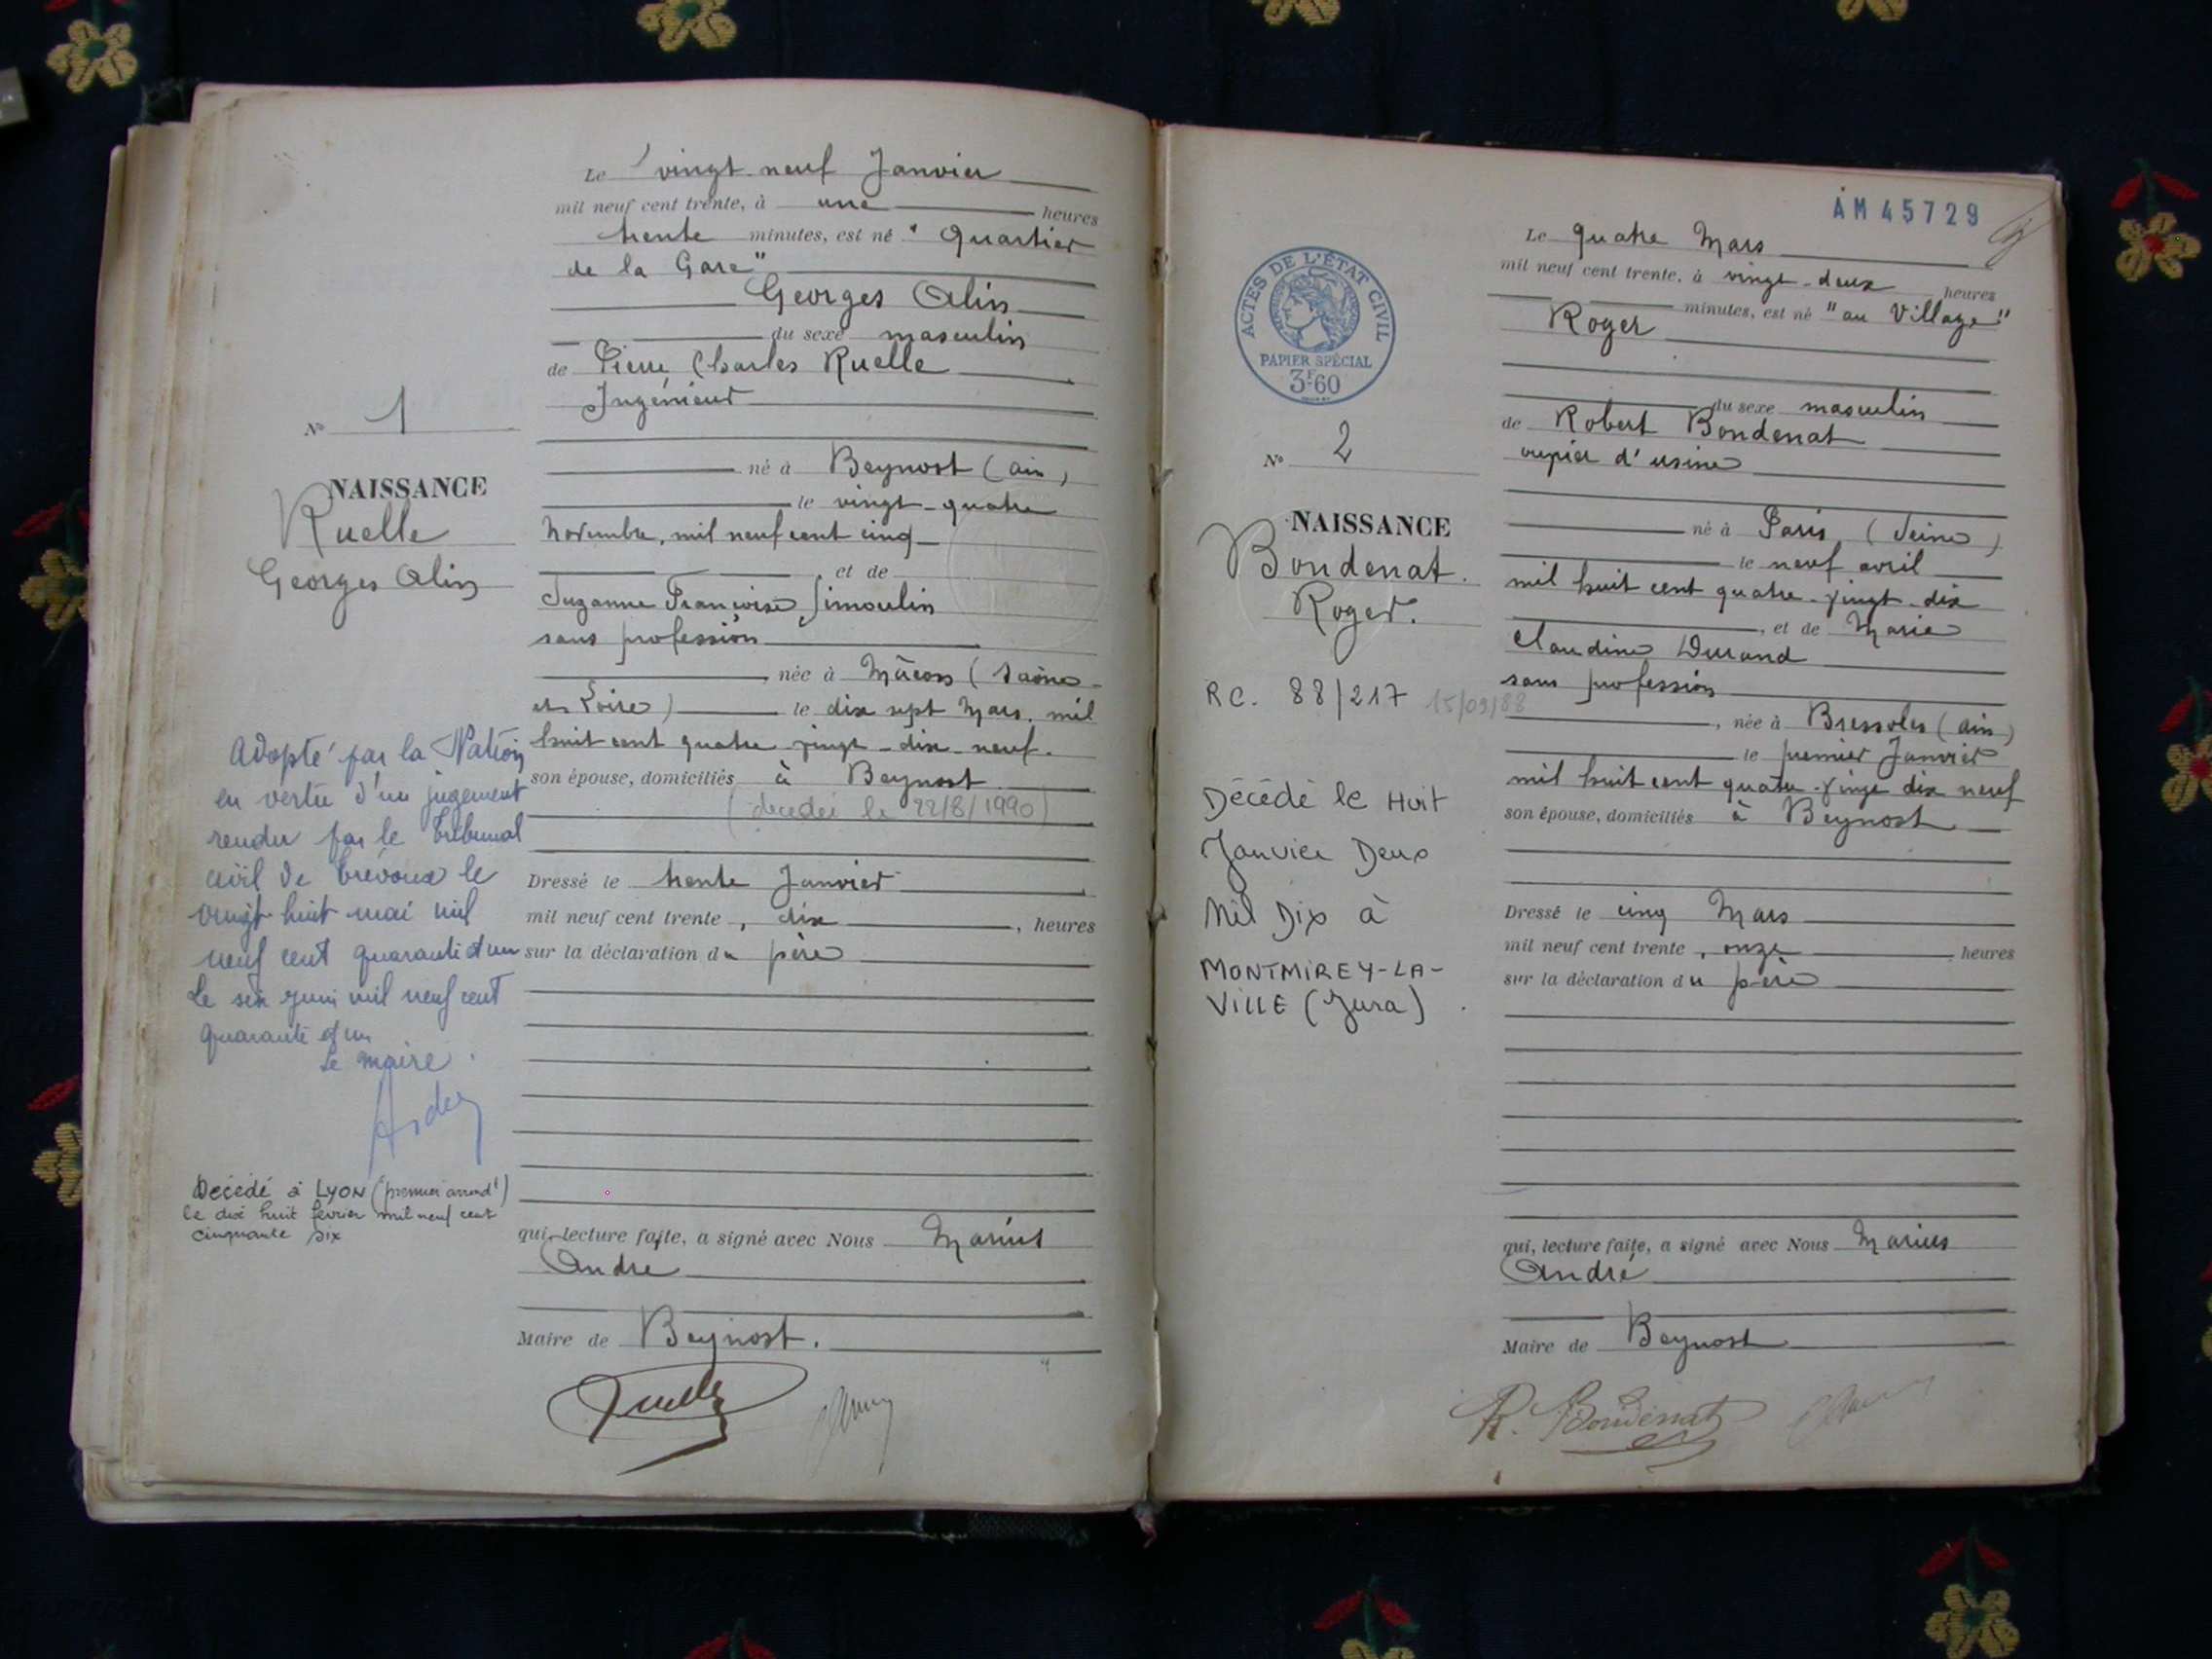 Le vingt-neuf Janvier
mil neuf cent trente, à une heures
trente minutes, est né "Quartier
de la Gare"
Georges Alin
du sexe masculin
de Pierre Charles Ruelle
Ingénieur
né à Beynost (ain)
le vingt-quatre
novembre, mil neuf cent cinq
, et de
Suzanne Françoise Simoulin
sans profession
, née à Mâcon (Saône-
et-Loire) le dix sept Mars, mil
huit cent quatre-vingt-dix-neuf.
son épouse, domiciliés à Beynost
(décédé le 22/8/1990)
Dressé le trente Janvier
mil neuf cent trente, dix, heures
sur la déclaration du père
qui, lecture faite, a signé avec Nous Marius
André
Maire de Beynost.
Ruelle
N° 1
NAISSANCE
Ruelle
Georges Alin
Adopté par la Nation
en vertu d'un jugement
rendu par le Tribunal
civil de Trévoux le
vingt huit mai mil
neuf cent quarante et un
Le six juin mil neuf cent
quarante et un
Le maire.
Décédé à LYON (premier arrondt)
le dix huit février mil neuf cent
cinquante six
AM 45729
ACTES DE L'ÉTAT CIVIL
PAPIER SPÉCIAL
3F60
N° 2
NAISSANCE
Bondenat.
Roger.
RC. 88/217 15/09/88
Décédé le Huit
Janvier Deux
Mil Dix à
MONTMIREY-LA-
VILLE (Jura).
Le quatre Mars
mil neuf cent trente, à vingt-deux heures
minutes, est né "au Village"
Roger
du sexe masculin
de Robert Bondenat
ouvrier d'usine
né à Paris (Seine)
le neuf avril
mil huit cent quatre-vingt-dix
, et de Marie
Claudine Durand
sans profession
, née à Bressoles (ain)
le premier Janvier
mil huit cent quatre-vingt dix neuf
son épouse, domiciliés à Beynost
Dressé le cinq Mars
mil neuf cent trente, onze, heures
sur la déclaration du père
qui, lecture faite, a signé avec Nous Marius
André
Maire de Beynost
R. Bondenat